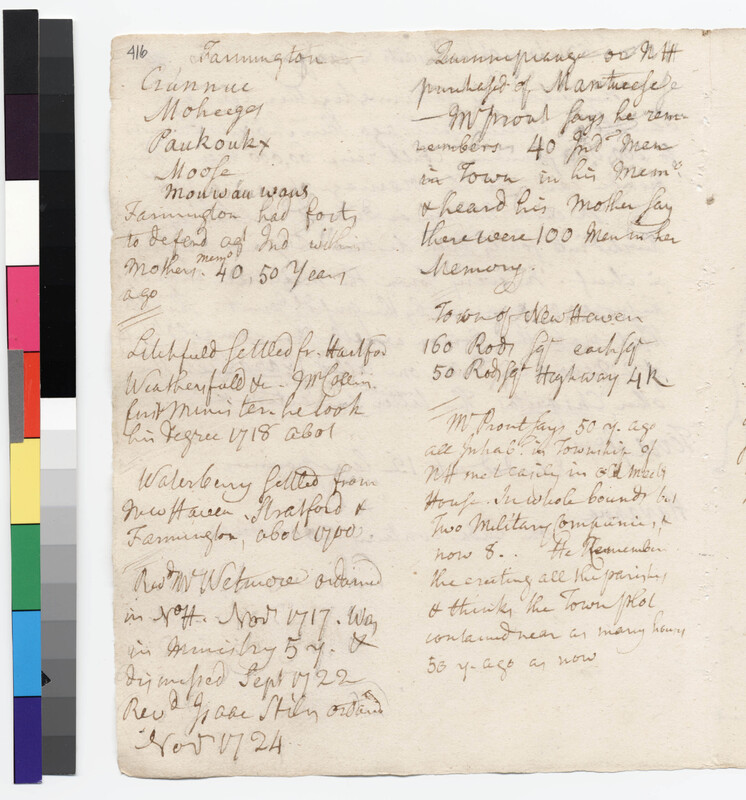 416
Farmington
Crunnuc
Moheeges
Paukoukx
Moose
Mouwauwaus
Farmington had forts
to defend agt Ind within
Mothers Memo 40 50 Years
ago
Litchfield settled fr. Hartfor
Weathersfield &c. Mr Collin
first Minister he took
his degree 1718 abot
Waterberry settled from
New Haven, Stratford &
Farmington, abot 1700
Revd Mr Wetmore ordained
in No H. Novr 1717. Was
in Ministry 5 y. &
dismissed Sept 1722
Revd Isaac Stiles ordaind
Novr 1724
or NH
purchased of Mantueesese
— Mr prout says he reme
embers 40 Indn Men
in Town in his Memo
& heard his Mother say
there were 100 Men in her
Memory.
Town of New Haven
160 Rods sqr each sqr
50 Rods sqr Highway 4 R.
Mr Prout says 50 y. ago
all Inhab. in Township of
NH met easily in old Meetg
House. In whole bounds but
Two Military Companies, &
now 8.. He Remember
the erecting all the parishes
& thinks the Town plot
contained near as many houses
50 y. ago as now